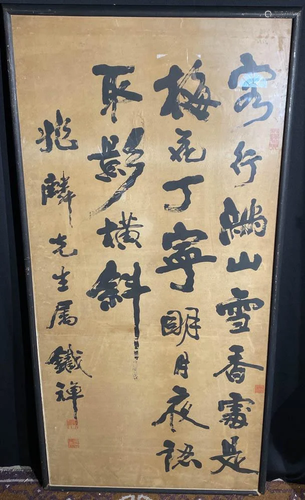 客行滿山雪香處是
梅花丁寧明月夜認
取影橫斜
麟先生属 鐵禪